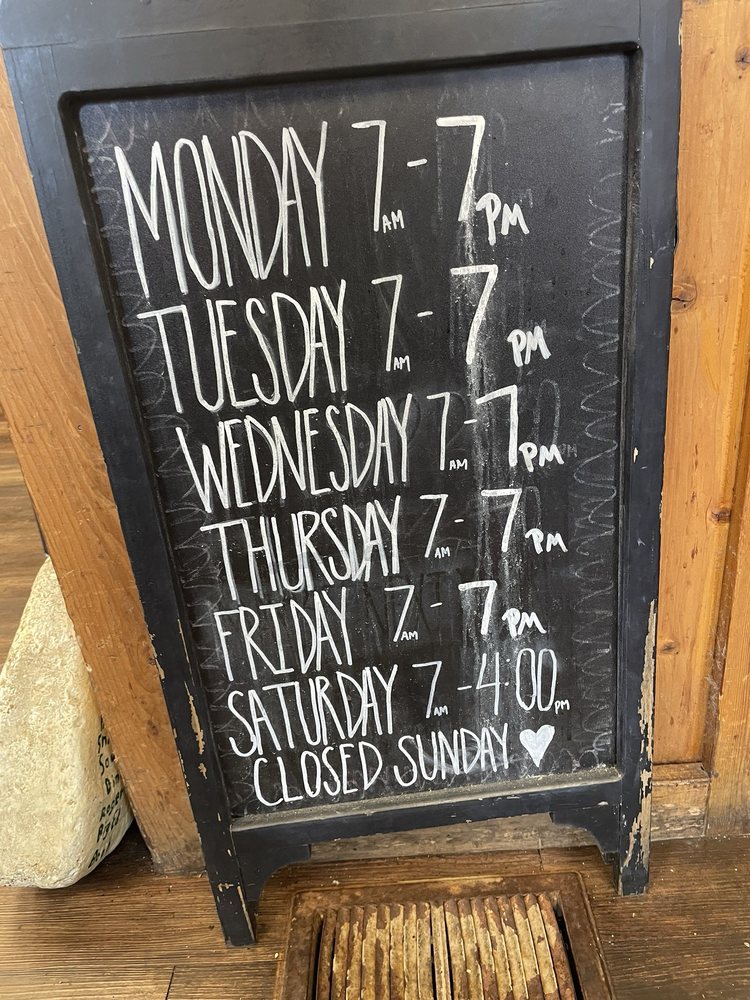 MONDAY 7AM - 7PM
TUESDAY 7AM - 7PM
WEDNESDAY 7AM - 7PM
THURSDAY 7AM - 7PM
FRIDAY 7AM - 7PM
SATURDAY 7AM - 4:00PM
CLOSED SUNDAY